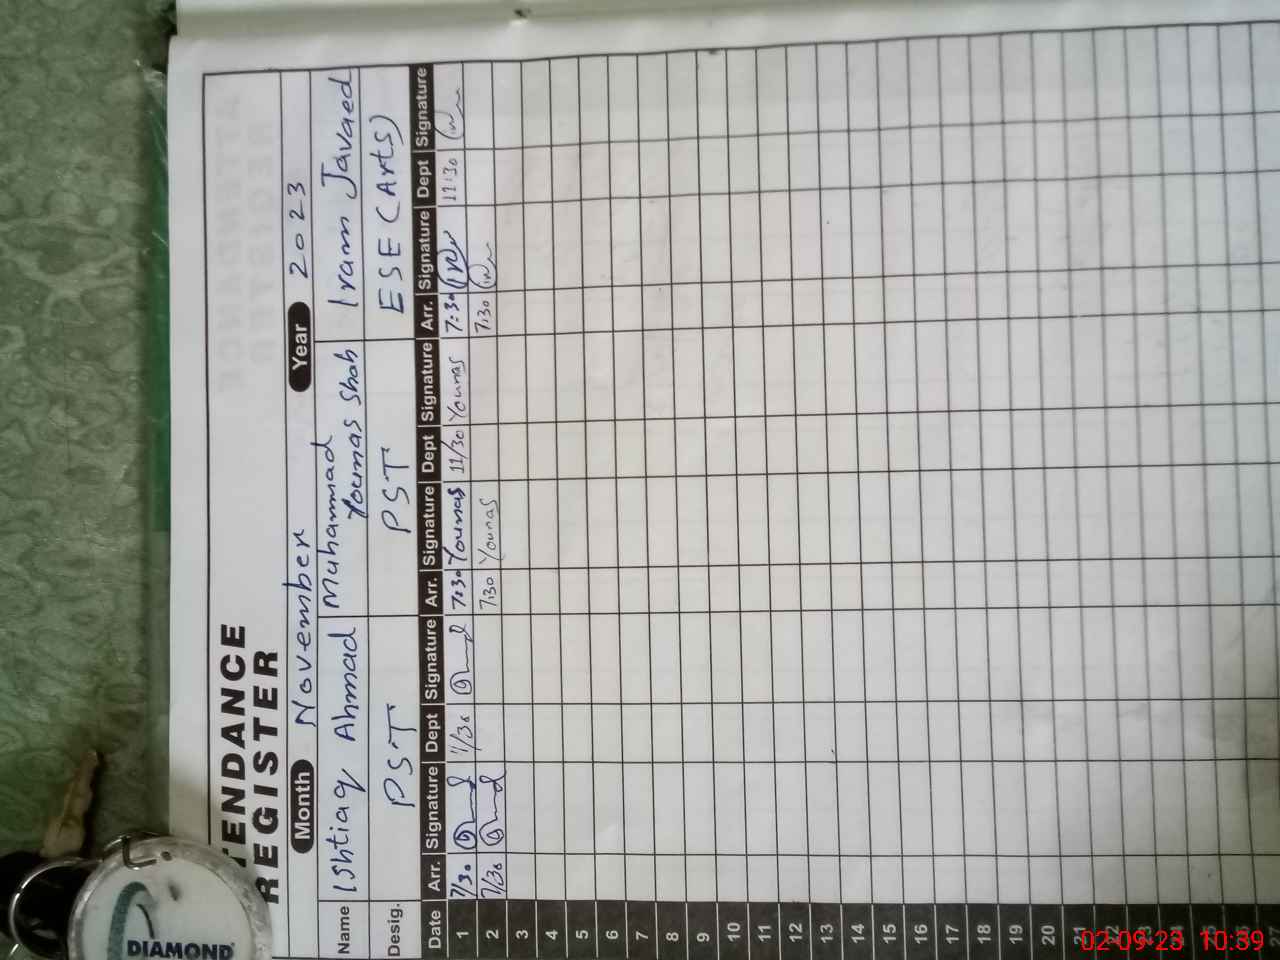 TENDANCE
REGISTER
Month November Year 2023
Name Ishtiaq Ahmad Muhammad Younas Shah Iram Javaed
Desig. PST PST ESE (Arts)
Date Arr. Signature Dept Signature Arr. Signature Dept Signature Arr. Signature Dept Signature
1 7/30 11/30 7:30 Younas 11/30 Younas 7:30 11:30
2 7/30 7:30 Younas 7:30
3
4
5
6
7
8
9
10
11
12
13
14
15
16
17
18
19
20
21
22
23
24
25
26
27
DIAMOND
02-09-23 10:39